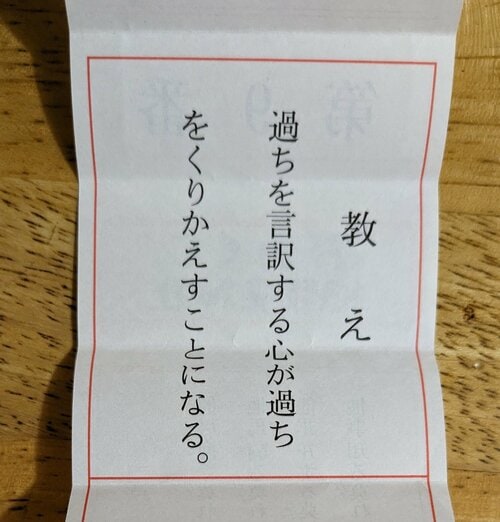 教え
過ちを言訳する心が過ち
をくりかえすことになる。